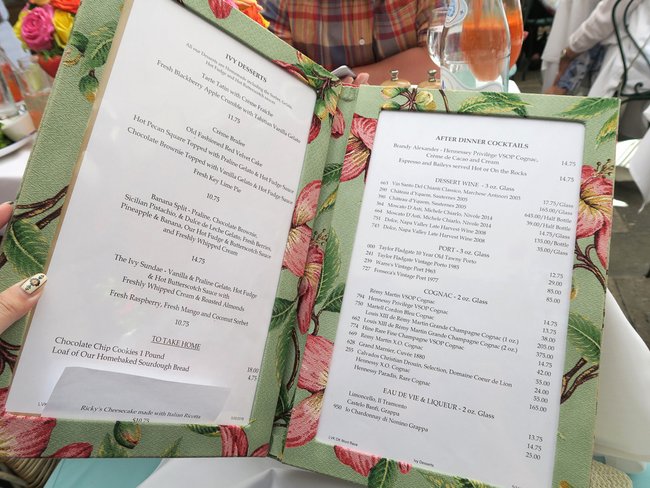 IVY DESSERTS
All our Desserts are Homemade including the Sorbet, Gelato,
Hot Fudge and Hot Butterscotch Sauces
Tarte Tatin with Crème Fraîche
Fresh Blackberry Apple Crumble with Tahitian Vanilla Gelato
11.75
Crème Brulee
Old Fashioned Red Velvet Cake
Hot Pecan Square Topped with Praline Gelato & Hot Fudge Sauce
Chocolate Brownie Topped with Vanilla Gelato & Hot Fudge Sauce
Fresh Key Lime Pie
10.75
Banana Split - Praline, Chocolate Brownie,
Sicilian Pistachio, & Dulce de Leche Gelato, Fresh Berries,
Pineapple & Banana, Our Hot Fudge & Butterscotch Sauce
and Freshly Whipped Cream
14.75
The Ivy Sundae - Vanilla & Praline Gelato, Hot Fudge
& Hot Butterscotch Sauce with
Freshly Whipped Cream & Roasted Almonds
Fresh Raspberry, Fresh Mango and Coconut Sorbet
10.75
TO TAKE HOME
Chocolate Chip Cookies 1 Pound 18.00
Loaf of Our Homebaked Sourdough Bread 4.75
Ricky's Cheesecake made with Italian Ricotta
$10.75
AFTER DINNER COCKTAILS
Brandy Alexander - Hennessy Privilège VSOP Cognac,
Crème de Cacao and Cream 14.75
Espresso and Baileys served Hot or On the Rocks 14.75
DESSERT WINE - 3 oz. Glass
663 Vin Santo Del Chianti Classico, Marchese Antinori 2005 17.75/Glass
Château D'Yquem, Sauternes 2005 165.00/Glass
Château D'Yquem, Sauternes 2005 645.00/Half Bottle
Moscato D'Asti, Michele Chiarlo, Nivole 2014 39.00/Half Bottle
Moscato D'Asti, Michele Chiarlo, Nivole 2014 14.75/Glass
751 Dolce, Napa Valley Late Harvest Wine 2008 135.00/Bottle
743 Dolce, Napa Valley Late Harvest Wine 2008 35.00/Glass
PORT - 3 oz. Glass
000 Taylor Fladgate 10 Year Old Tawny Porto 12.75
Taylor Fladgate Vintage Porto 1985 29.00
Warre's Vintage Port 1963 85.00
727 Fonseca's Vintage Port 1977 85.00
COGNAC - 2 oz. Glass
Remy Martin VSOP Cognac 14.75
794 Hennessy Privilège VSOP Cognac 13.75
750 Martell Cordon Bleu Cognac 38.75
662 Louis XIII de Remy Martin Grande Champagne Cognac (1 oz.) 205.00
664 Louis XIII de Remy Martin Grande Champagne Cognac (2 oz.) 375.00
774 Hine Rare Fine Champagne VSOP Cognac 14.75
Remy Martin X.O. Cognac 42.00
628 Grand Marnier, Cuvée 1880 55.00
255 Calvados Christian Drouin, Selection, Domaine Coeur de Lion 24.00
Hennessy X.O. Cognac 55.00
Hennessy Paradis, Rare Cognac 165.00
EAU DE VIE & LIQUEUR - 2 oz. Glass
Limoncello, Il Tramonto 13.75
Castelo Banfi, Grappa 14.75
950 Io Chardonnay di Nonino Grappa 25.00
Ivy Desserts